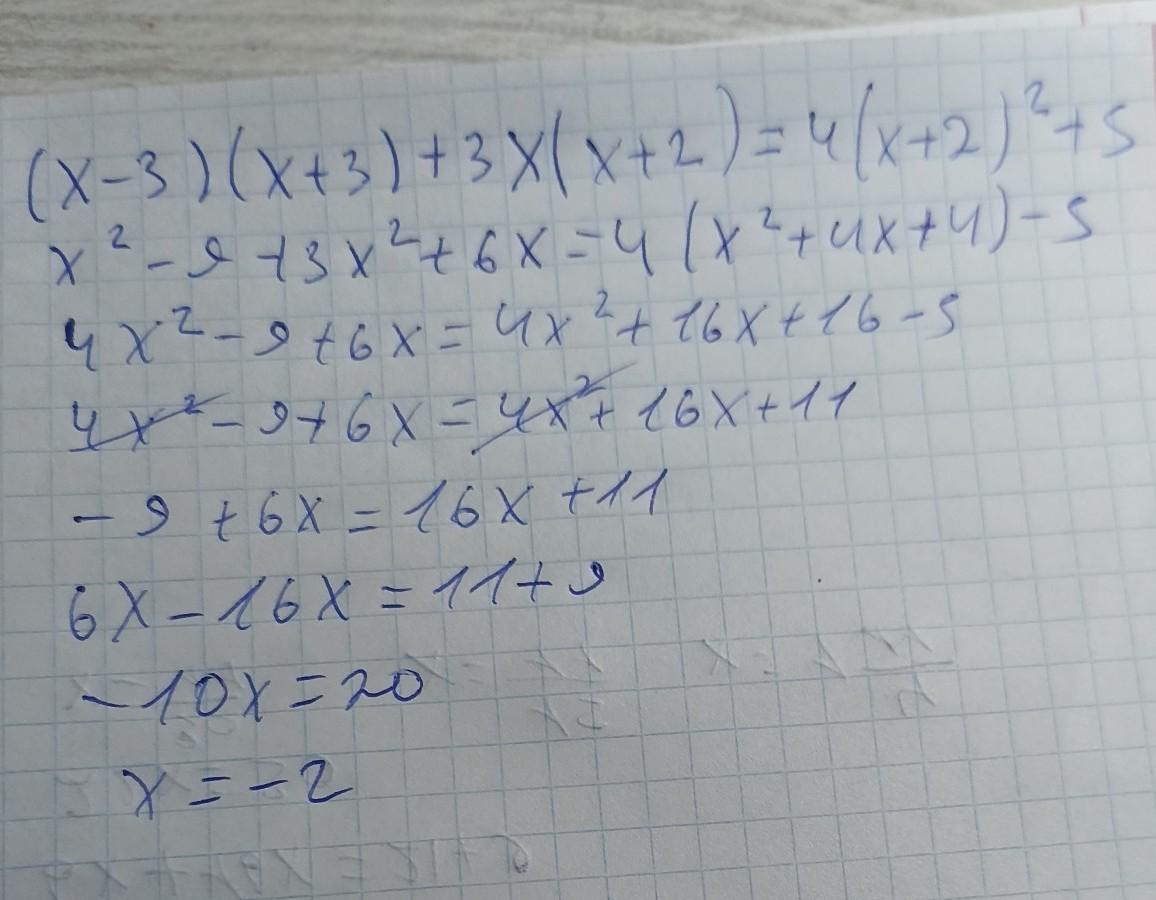 (x-3)(x+3)+3x(x+2)=4(x+2)²+5
x²-9+3x²+6x=4(x²+4x+4)-5
4x²-9+6x=4x²+16x+16-5
4x²-9+6x=4x²+16x+11
-9+6x=16x+11
6x-16x=11+9
-10x=20
x=-2